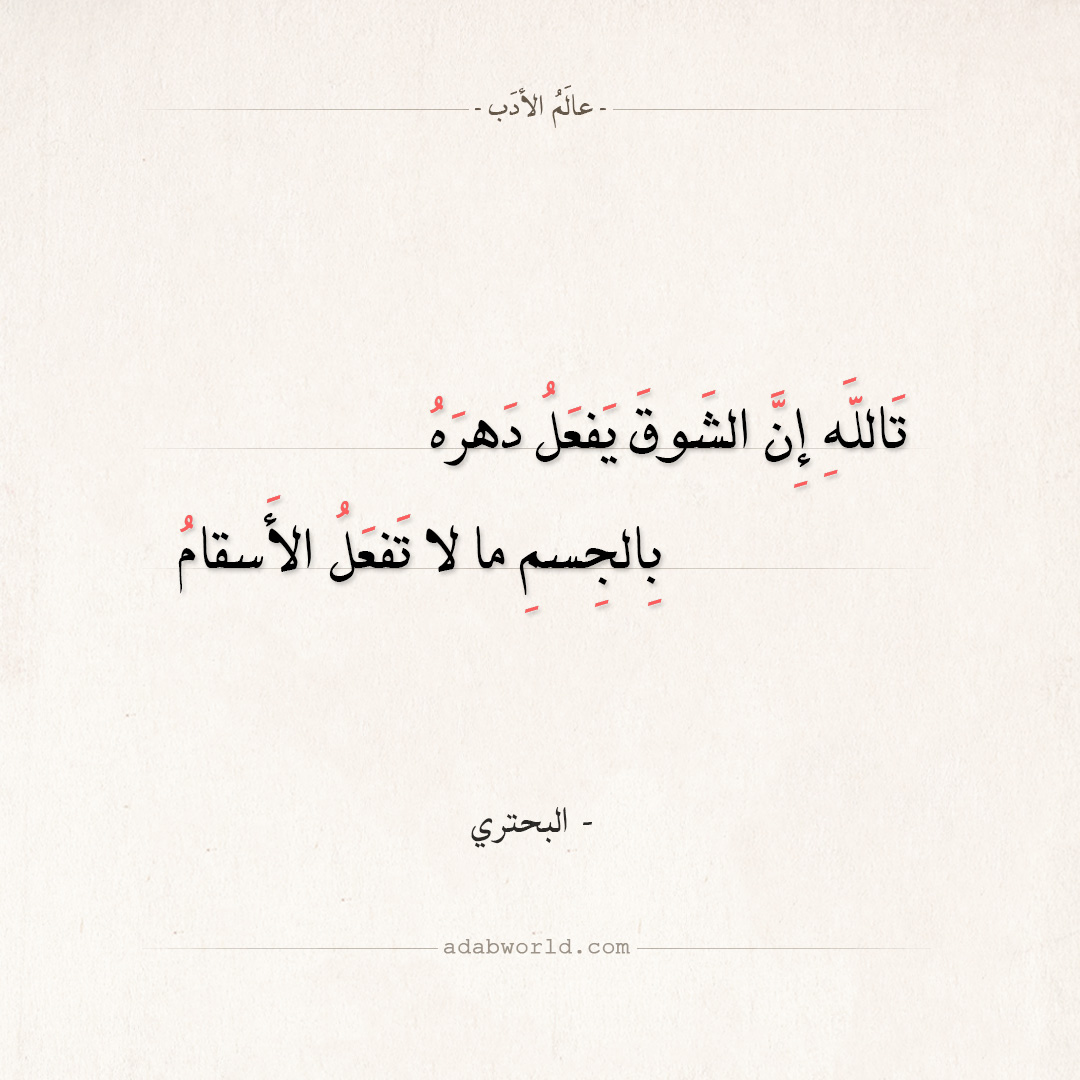 - عالَمُ الأدَب -
تَاللَّهِ إِنَّ الشَوقَ يَفعَلُ دَهرَهُ
بِالجِسمِ ما لا تَفعَلُ الأَسقامُ
- البحتري
adabworld.com